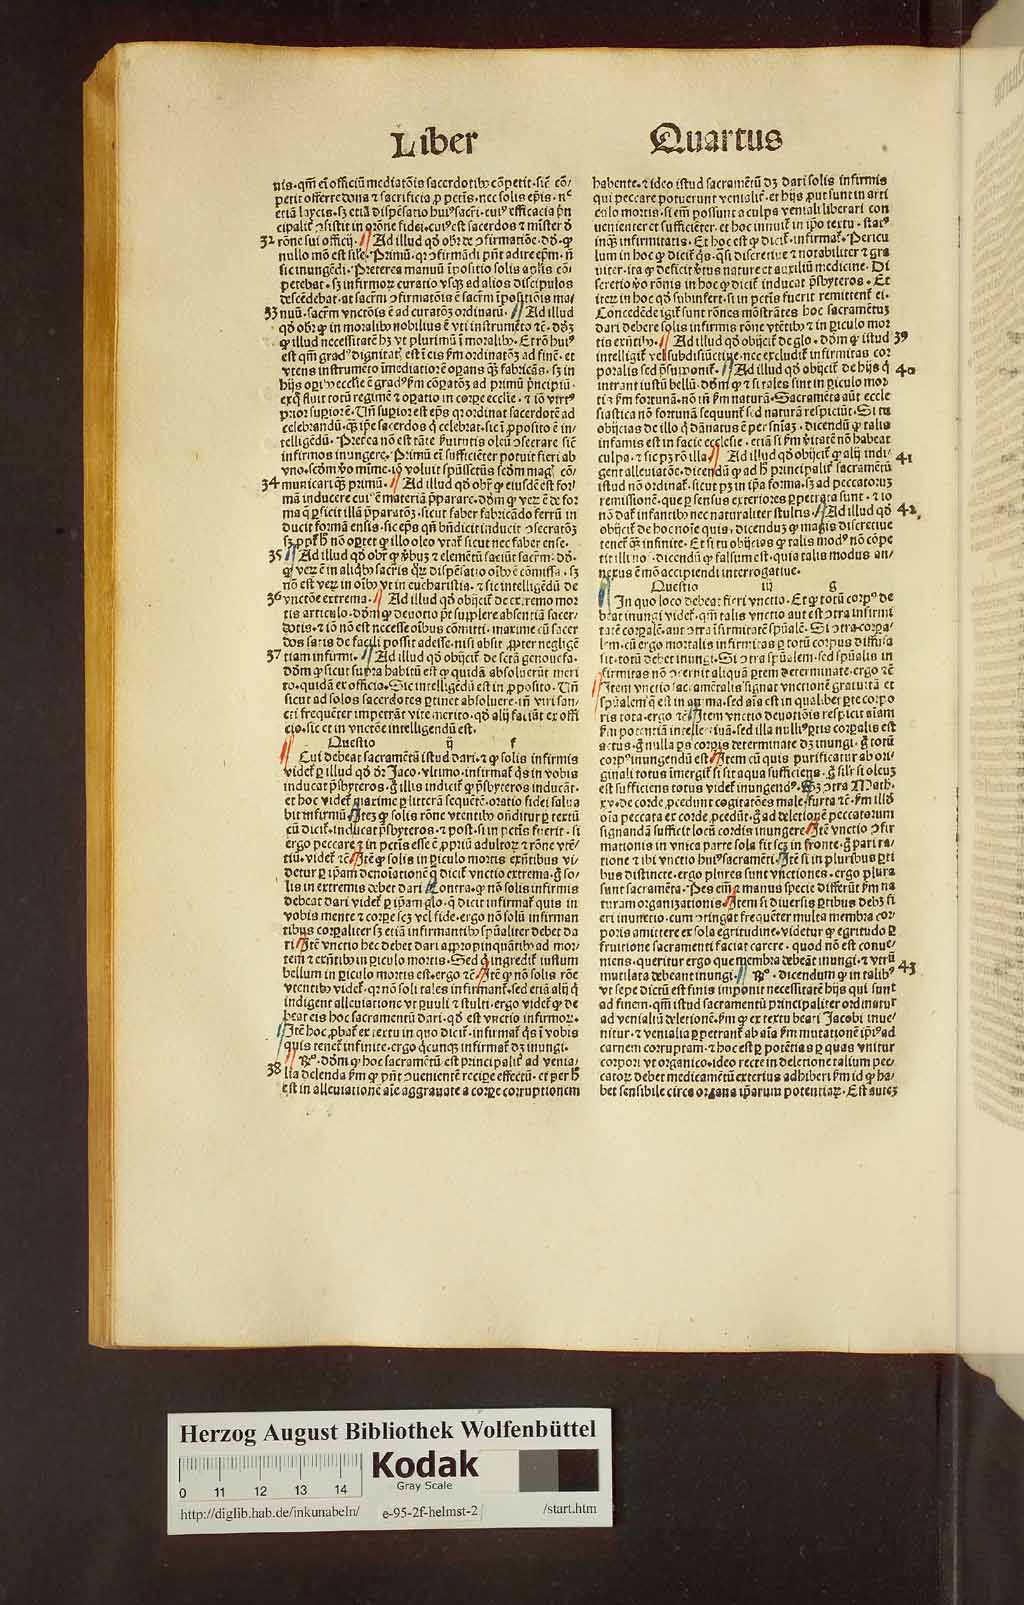 Liber Quartus
nis. qm̄ eī officiū mediatōis sacerdotibꝰ cōpetit. sic̄ cō/
petit offerre dona ⁊ sacrificia ꝓ pctīs. nec solis
etiā laycis. sꝫ etiā dispēsatio huiꝰ sacrī. cuiꝰ efficacia
ꝯsistit in orōne fidei. cuiꝰ est sacerdos ⁊ mīster
32 rōne sui officij. Ad illud qd̓ obr̄ de ꝯfirmatiōe. dō. ꝙ
nullo mō est sile. Primū. qꝛ ꝯfirmādi pn̄t adire ep̄m. n̄
sic inungēdi. Preterea manuū īpositio solis aplīs cō
petebat. sꝫ infirmoꝝ curatio vsqꝫ ad alios discipulos
descēdebat. at sacrm̄ ꝯfirmatōis ē sacrm̄ īpositiōis ma/
33 nuū. sacrm̄ vnctōis ē ad curatōꝫ ordinatū. Ad illud
qd̓ obr̄ ꝙ in moralibꝰ nobilius ē vti instrumēto ⁊c̄. dōꝫ
ꝙ illud necessitatē hꝫ vt plurimū ī moralibꝰ. Et rō huiꝰ
est qm̄ gradꝰ dignitatꝭ est ē eis ordinatōꝫ ad finē. et
vtens instrumēto īmediatiorē
hijs in eccle̅ē ē gradꝰ cōparatōꝫ ad primū pn̄cipiū.
exq̄ fluit totū regimē ⁊ opatio in corpe ecclie. ⁊ iō virtꝰ
prior supiore. Vn̄ supior est ep̄s q̄ ordinat sacerdotē ad
celebrandū. ipe sacerdos q̄ celebrat. sic ī ꝓposito ē in/
telligēdū. Preterea nō est tāte oleū ꝯsecrare sic̄
infirmos inungere. Primū eī sufficiēter potuit fieri ab
vno. scd̓m v̓o mīme. iō voluit spūssctūs scd̓m magꝭ cō/
34 municari qꝫ primū. Ad illud qd̓ obr̄ ꝙ eiusdē est for/
mā inducere cuiꝰ ē materiā p̄parare. dōm ꝙ veꝝ ē de for
ma q̄ ꝑficit illā p̄paratōꝫ. sicut faber fabricādo ferrū in
ducit formā ensis. sic ep̄s qn̄ bn̄dicit inducit ꝯsecratōꝫ
sꝫ h̄ nō oportet ꝙ illo oleo vtat̄ sicut nec faber ense.
35 Ad illud qd̓ obr̄ ꝙ v̓bū ⁊ elemētū faciūt sacrm̄. dō.
ꝙ veꝝ ē in aliqbꝰ sacrīs qꝝ dispēsatio oībꝰ ē cōmissa. sꝫ
nō est veꝝ in oībꝰ vt in eucharistia. ⁊ sic intelligēdū de
36 vnctōe extrema. Ad illud qd̓ obijcit̄ de extremo mor
tis articulo. dōm ꝙ deuotio pt̄ supplere absentiā sacer/
dotis. ⁊ iō nō est necesse oībus cōmitti. maxime cū sacer
dos satis de facili possit adesse. nisi absit ꝓpter negligē
37 tiam infirmi. Ad illud qd̓ obijcit̄ de sctā genouefa.
dōm ꝙ sicut supra habitū est ꝙ quidā absoluerūt meri
to. quidā ex officio. Sic intelligēdū est in ꝓposito. Vn̄
sicut ad solos sacerdotes ptinet absoluere. tn̄ viri san/
cti frequēter impetrāt vite merito. qd̓ alij faciūt ex offi
cio. sic et in vnctōe intelligendū est.
Questio ij f
Cui debeat sacramētū istud dari. ⁊ ꝙ solis infirmis
videt̄ p illud qd̓ dr̄ Jaco. vltimo. infirmat̄ qs in vobis
inducat p̄sbyteros. g̊ illis indicit̄ ꝙ p̄sbyteros inducāt.
et hoc videt̄ maxime p litterā sequētē. oratio fidei salua
bit infirmū. Iteꝫ ꝙ solis rōne vtentibꝰ oñditur p textū
cū dicit. inducat p̄sbyteros. ⁊ post. si in pctīs fuerit. si
ergo peccare ⁊ in pctīs esse ē ꝓpriū adultoꝝ ⁊ rōne vtē/
tiū. videt̄ ⁊c̄. Itē ꝙ solis in piculo mortis exn̄tibus vi/
detur p ipam denoīationē q̄ dicit̄ vnctio extrema. g̊ so/
lis in extremis debet dari. Contra. ꝙ nō solis infirmis
debeat dari videt̄ p ipam glo. q̄ dicit infirmat̄ quis in
vobis mente ⁊ corpe scꝫ vel fide. ergo nō solū infirman
tibus corpaliter sꝫ etiā infirmantibꝰ spūaliter debet da
ri. Itē vnctio hec debet dari appropinquātibꝰ ad mor/
tem ⁊ exn̄tibꝰ in piculo mortis. Sed q̄ ingredit̄ iustum
bellum in piculo mortis est. ergo ⁊c̄. Itē ꝙ nō solis rōe
vtentibꝰ videt̄. qꝛ nō soli tales infirmant̄. sed eciā alij q̄
indigent alleuiatione vt puuli ⁊ stulti. ergo videt̄ ꝙ de
beat eis hoc sacramentū dari. qd̓ est vnctio infirmoꝝ.
Itē hoc ꝓbat̄ ex textu in quo dicit̄. infirmat̄ qs ī vobis
quis tenet̄ infinite. ergo qcunqꝫ infirmat̄ dꝫ inungi.
Rº. dōm ꝙ hoc sacramētū est principalit̄ ad venia/
38 lia delenda ꝙ pn̄t ꝯuenientē recipe effectū. et per h̄
est in alleuiationē aīe aggrauate a corpe corruptionem
habente. ⁊ ideo istud sacramētū dꝫ dari solis infirmis
qui peccare potuerunt venialit̄. et hijs ꝓut sunt in arti
culo mortis. si em̄ possunt a culpa veniali liberari con
uenienter et sufficiēter. et hoc innuit̄ in ipo textu. statꝰ
inqꝫ infirmitatis. Et hoc est ꝙ dicit̄. infirmat̄. Pericu
lum in hoc ꝙ dicit̄ qs. qsi discretiue ⁊ notabiliter ⁊ gra
uiter. ita ꝙ deficit v̓tus nature et auxiliū medicine. Di
scretio v̓o rōnis in hoc ꝙ dicit̄ inducat p̄sbyteros. Et
iteꝝ in hoc qd̓ subinfert. si in pctīs fuerit remittent̄ ei.
Concedēde igit̄ sunt rōnes mōstrātes hoc sacramētuꝫ
dari debere solis infirmis rōne vtētibꝰ ⁊ in piculo mor
tis exn̄tibꝰ. Ad illud qd̓ obijcit̄ de glo. dōm ꝙ istud 39
intelligit̄ vel subdisiūctiue. nec excludit̄ infirmitas cor
poralis sed p̄supponit̄. Ad illud qd̓ obijcit̄ de hijs q̄ 40
intrant iustū bellū. dōm ꝙ ⁊ si tales sint in piculo mor
tis fortunā. nō tn̄ naturā. Sacramēta aūt eccle
siastica nō fortunā sequunt̄ sed naturā respiciūt. Si tu
obijcias de illo q̄ dānatus ē per snīaꝫ. dicendū ꝙ talis
infamis est in facie ecclesie. etiā si v̓itatē nō habeat
culpā. ⁊ sic pꝫ rō illa. Ad illud qd̓ obijcit̄ ꝙ alij indi/ 41
gent alleuiatōe. dicendū ꝙ ad h̄ principalit̄ sacramētū
istud nō ordinat̄. sicut pꝫ in ipa forma. sꝫ ad peccatoruꝫ
remissionē. que p sensus exteriores ppetrata sunt. ⁊ iō
nō dat̄ infantibꝰ nec naturaliter stultis. Ad illud qd̓ 42
obijcit̄ de hoc noīe quis. dicenduꝫ ꝙ magis discretiue
tenet̄ qꝫ infinite. Et si tu obijcias ꝙ talis modꝰ nō cōpe
tit illi noī. dicendū ꝙ falsum est. quia talis modus an/
nexus ē mō accipiendi interrogatiue.
Questio iij g
In quo loco debeat fieri vnctio. Et ꝙ totū corpꝰ de
beat inungi videt̄. qm̄ talis vnctio aut est ꝯtra infirmi
tatē corpalē. aut ꝯtra īfirmitatē spūalē. Si ꝯtra corpa/
lem. cū ergo mortalis infirmitas p totū corpus diffusa
sit. totū debet inungi. Si ꝯtra spūalem. sed spūalis in
firmitas nō ꝯcernit aliquā ptem determinate. ergo ⁊c̄
Item vnctio sacramētalis signat vnctionē gratuitā et
spūalem q̄ est in anima. sed aīa est in qualibet pte corpo
ris tota. ergo ⁊c̄. Item vnctio deuotiōis respicit aīam
potentiam intellectiuā. sed illa nulliꝰ ptis corpalis est
actus. g̊ nulla ps corpis determinate dꝫ inungi. g̊ totū
corpꝰ inungendū est. Item cū quis purificatur ab ori/
ginali totus inergit̄ si sit aqua sufficiens. g̊ silr̄ si oleuꝫ
est sufficiens totus videt̄ inungendꝰ. Sꝫ ꝯtra Math.
xv. de corde ꝓcedunt cogitatōes male. furta ⁊c̄. illd̓
oīa peccata ex corde ꝓcedūt. g̊ ad deletionē peccatorum
signandā sufficit locū cordis inungere. Itē vnctio ꝯfir
mationis in vnica parte sola fit scꝫ in fronte. g̊ pari ra/
tione ⁊ ibi vnctio huiꝰ sacramēti. Itē si in pluribus pti
bus distincte. ergo plures sunt vnctiones. ergo plura
sunt sacramēta. Pes em̄ ⁊ manus specie differūt na
turam organizationis. Item si diuersis ptibus debꝫ fi
eri inunctio. cum ꝯtingat frequēter multa membra cor/
poris amittere ex sola egritudine. videtur ꝙ egritudo p
fruitione sacramenti faciat carere. quod nō est conue/
niens. queritur ergo que membra debeāt inungi. ⁊ vtrū
mutilata debeant inungi. Rº. dicendum ꝙ in talibꝰ 43
vt sepe dictū est finis imponit necessitatē hijs qui sunt
ad finem. qm̄ istud sacramentū principaliter ordinatur
ad venialiū deletionē. ꝙ ex textu beati Jacobi inue/
nitur. ⁊ venialia ppetrant̄ ab aīa mutationē ipiꝰ ad
carnem corruptam. ⁊ hoc est p potētias p quas vnitur
corpori vt organico. ideo recte in deletione talium pec/
catoꝝ debet medicamētū exterius adhiberi id ꝙ ha/
bet sensibile circa organa ipsarum potentiaꝝ. Est auteꝫ
Herzog August Bibliothek Wolfenbüttel
0 11 12 13 14
Kodak
Gray Scale
http://diglib.hab.de/inkunabeln/ e-95-2f-helmst-2 /start.htm